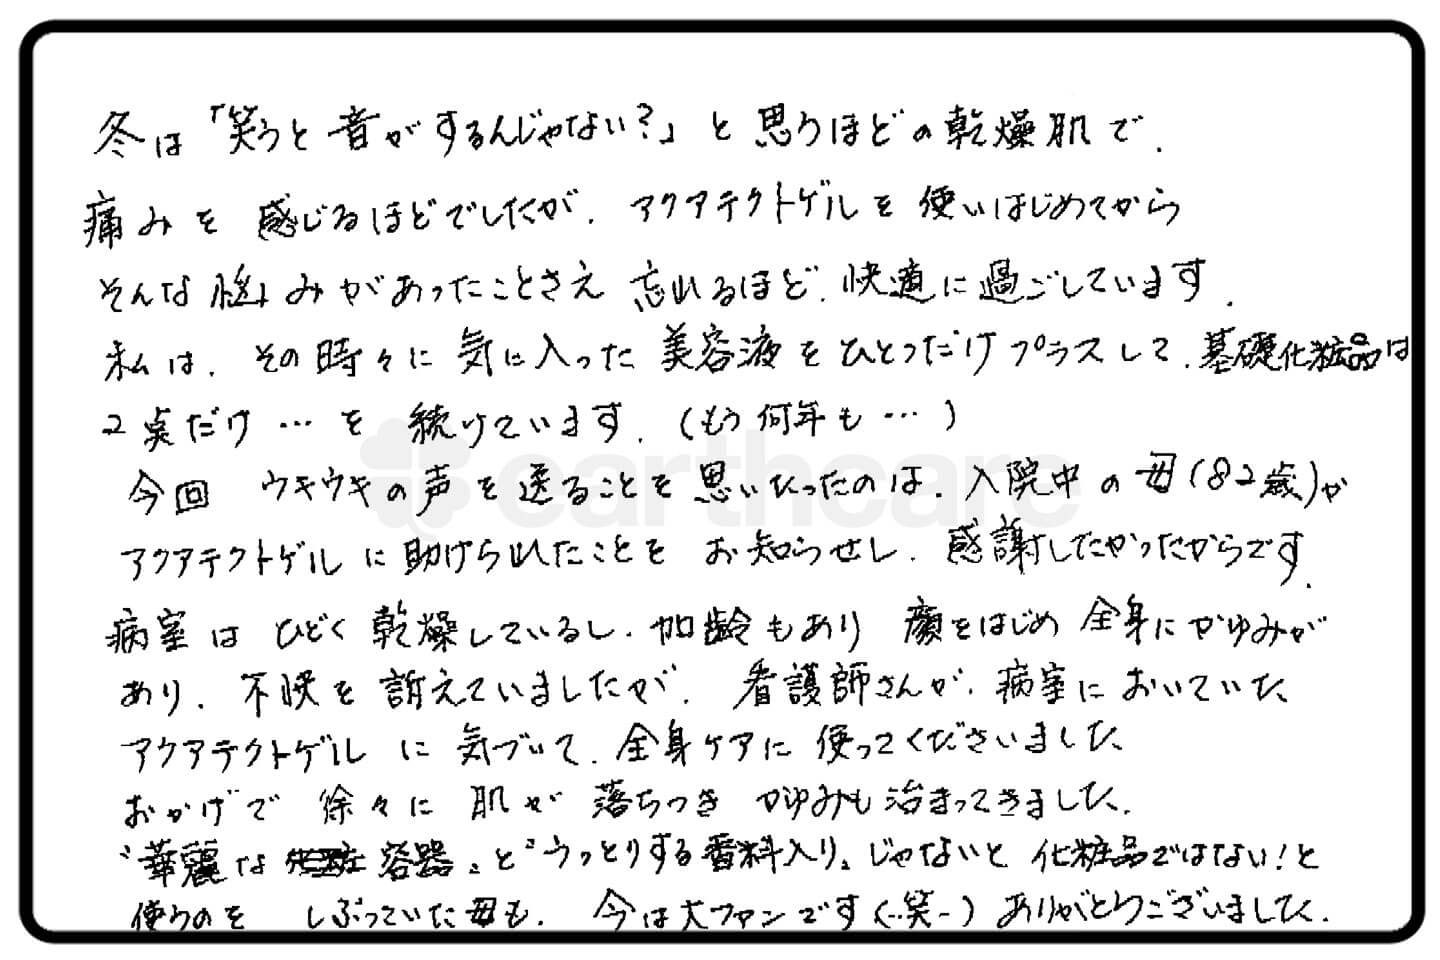 冬は「笑うと音がするんじゃない?」と思うほどの乾燥肌で、
痛みを感じるほどでしたが、アクアテクトゲルを使いはじめてから
そんな悩みがあったことさえ忘れるほど、快適に過ごしています。
私は、その時々に気に入った美容液をひとつだけプラスして、基礎化粧品は
2点だけ…を続けています。(もう何年も…)
earthcare
今回 ウキウキの声を送ることを思いたったのは、入院中の母(82歳)が
アクアテクトゲルに助けられたことをお知らせし、感謝したかったからです。
病室はひどく乾燥しているし、加齢もあり 顔をはじめ全身にかゆみが
あり、不快を訴えていましたが、看護師さんが、病室においていた
アクアテクトゲルに気づいて、全身ケアに使ってくださいました。
おかげで徐々に肌が落ちつきかゆみも治まってきました。
"華麗な容器"と"うっとりする香料入り"じゃないと化粧品ではない!と
使うのをしぶっていた母も、今は大ファンです(-笑-)ありがとうございました。